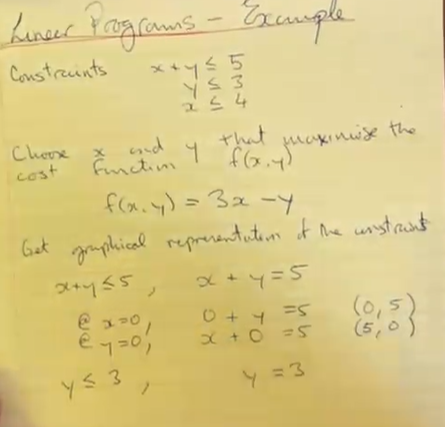 Linear Programs - Example
Constraints x + y ≤ 5
y ≤ 3
x ≤ 4
Choose x and y that maximise the
cost function f(x,y)
f(x,y) = 3x - y
Get graphical representation of the constraint
x+y ≤ 5, x + y = 5
@ x=0, 0 + y = 5 (0, 5)
@ y=0, x + 0 = 5 (5, 0)
y ≤ 3, y = 3